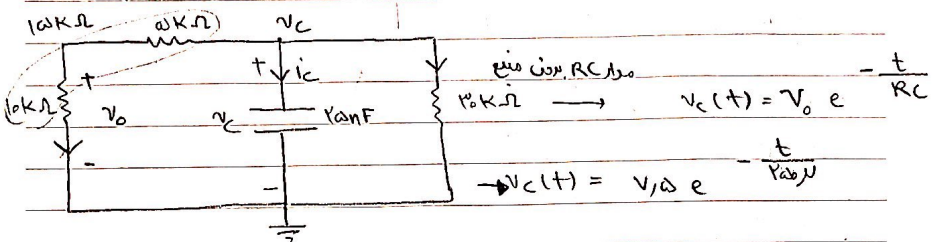 ۱۵KΩ ۵KΩ vc
+ + ic
۱۰KΩ v₀ vc ۲۵nF ۳۰KΩ
- -
مدار RC بدون منبع
→ vc(t) = V₀ e^(-t/RC)
→ vc(t) = ۷٫۵ e^(-t/۲۵۰μ)